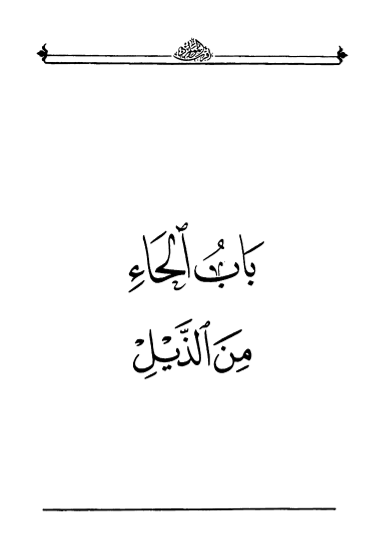 بَابُ ٱلْحَاءِ
مِنَ ٱلذَّيْلِ